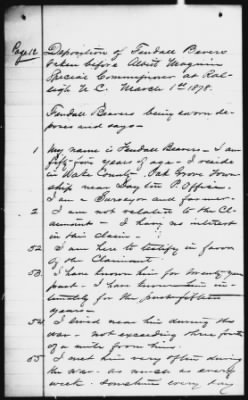 Page 12
Deposition of Fendall Beavers
taken before Albert Magnin
Special Commissioner at Ral-
eigh N C. March 1st 1878.
Fendall Beavers being sworn de-
poses and says-
1 My name is Fendall Beavers - I am
fifty-five years of age - I reside
in Wake County - Oak Grove Town
ship near Dayton P. Office.
I am a Surveyor and farmer.
2 I am not related to the Cl-
aimant - I have no interest
in this claim -
52 I am here to testify in favor
of the Claimant.
53 I have known him for twenty years
past - I have known him in-
timately for the past fifteen
years -
54 I lived near him during the
war - not exceeding three forths
of a mile from him -
55 I met him very often during
the war - as much as every
week - sometimes every day